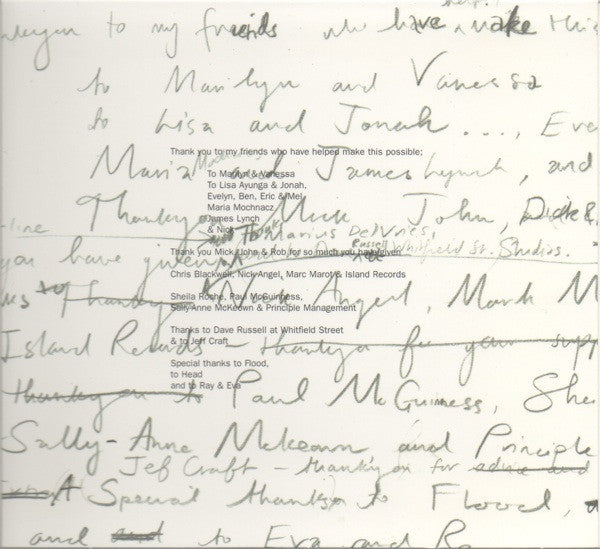 help!
thankyou to my friends who have make this
to Marilyn and Vanessa
to Lisa and Jonah..., Eve
Thank you to my friends who have helped make this possible;
Maria and James Lynch, and
To Marilyn & Vanessa
To Lisa Ayunga & Jonah,
Evelyn, Ben, Eric & Mel
Maria Mochnacz
James Lynch
& Nick
Thankyou Mick, John, Dick &
-line
to Marius DeVries,
Russell Whitfield St. Studios.
Thank you Mick, John & Rob for so much you have given
you have given
Chris Blackwell, Nick Angel, Marc Marot & Island Records
us to Thankyou Nick Angel, Mark M
Sheila Roche, Paul McGuinness,
Sally Anne McKeown & Principle Management
Thanks to Dave Russell at Whitfield Street
& to Jeff Craft
Island Records - thankyou for your supp
Special thanks to Flood,
to Head
and to Ray & Eva
thankyou to Paul McGuiness, She
Sally-Anne Mckeown and Principle
Jef Craft - thankyou for advice and
Special thanks to Flood,
and and to Eva and R